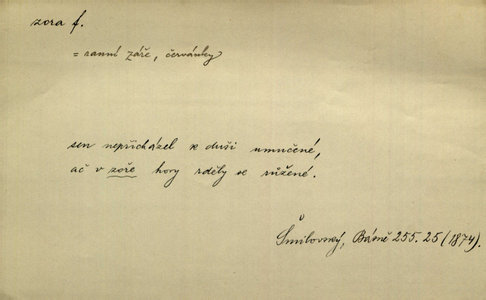 zora f.
= ranní záře, červánky
sen nepřicházel k duši umučené,
ač v zoře hory rděly se růžené.
Šmilovský, Básně 255.25 (1874).